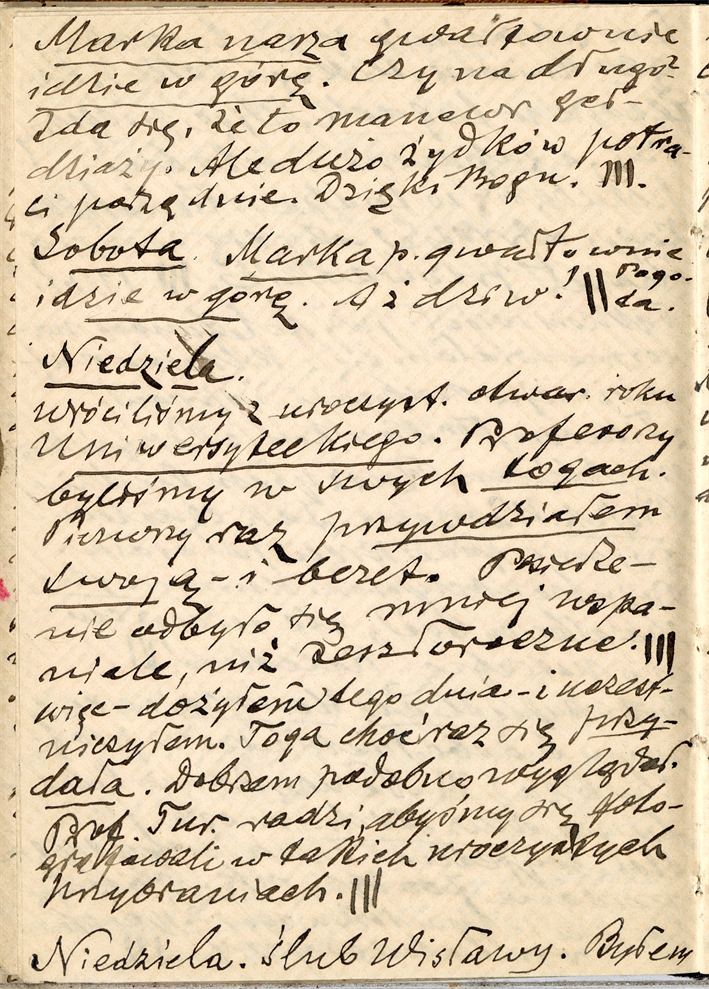 Marka nasza gwałtownie
idzie w górę. Czy na długo?
Zda się, że to manewr geł-
dziaży. Ale dużo żydków potra-
ci porządnie. Dzięki Bogu. III.
Sobota. Marka p. gwałtownie
idzie w górę. Aż dziw! || Pogo-
da.
Niedziela.
Wróciliśmy z uroczyst. otwar. roku
Uniwersyteckiego. Profesorzy
byliśmy w swych togach.
Pierwszy raz przywdziałem
swoją - i beret. Posiedze-
nie odbyło się mniej wspa-
niale, niż zeszłoroczne. |||
więc - dożyłem tego dnia - i uczest-
niczyłem. Toga choć raz się przy-
dała. Dobrzem podobno wyglądał.
Prof. Tur. radzi, abyśmy się foto-
grafowali w takich uroczystych
przybraniach. |||
Niedziela. Ślub Wisławy. Byłem